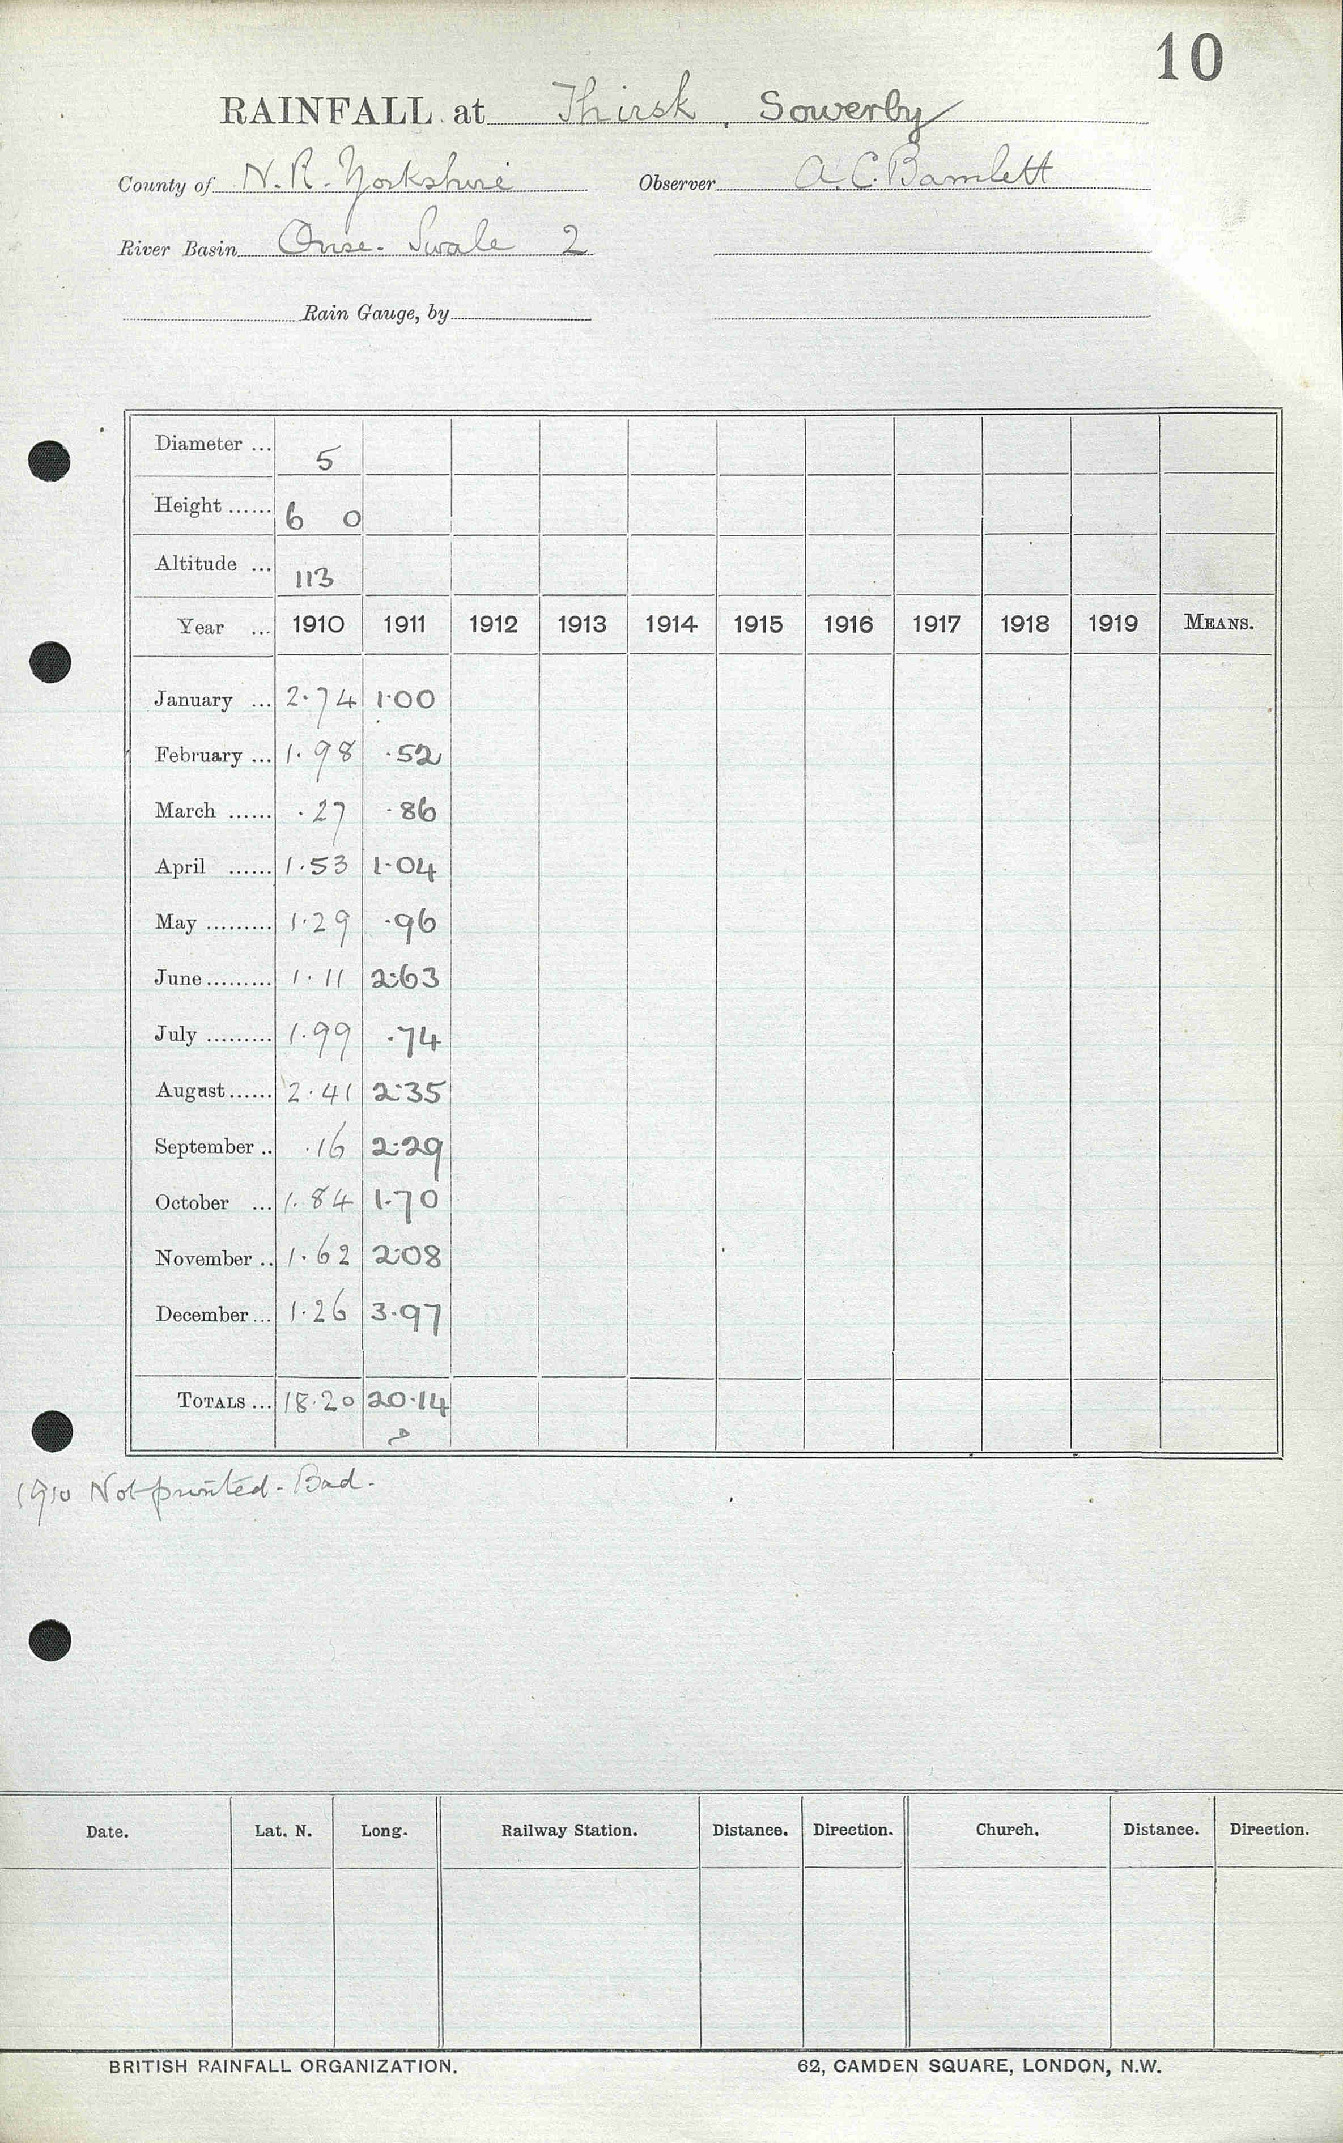 10
RAINFALL at Thirsk, Sowerby
County of N.R. Yorkshire Observer A. C. Bamlett
River Basin Ouse - Swale 2
Rain Gauge, by
Diameter ... 5
Height ...... 6 0
Altitude ... 113
Year ... 1910 1911 1912 1913 1914 1915 1916 1917 1918 1919 MEANS.
January ... 2.74 1.00
February ... 1.98 .52
March ...... .27 .86
April ...... 1.53 1.04
May ......... 1.29 .96
June ......... 1.11 2.63
July ......... 1.99 .74
August ...... 2.41 2.35
September .. .16 2.29
October ... 1.84 1.70
November .. 1.62 2.08
December ... 1.26 3.97
TOTALS ... 18.20 20.14
1910 Not printed - Bad.
Date. Lat. N. Long. Railway Station. Distance. Direction. Church. Distance. Direction.
BRITISH RAINFALL ORGANIZATION. 62, CAMDEN SQUARE, LONDON, N.W.